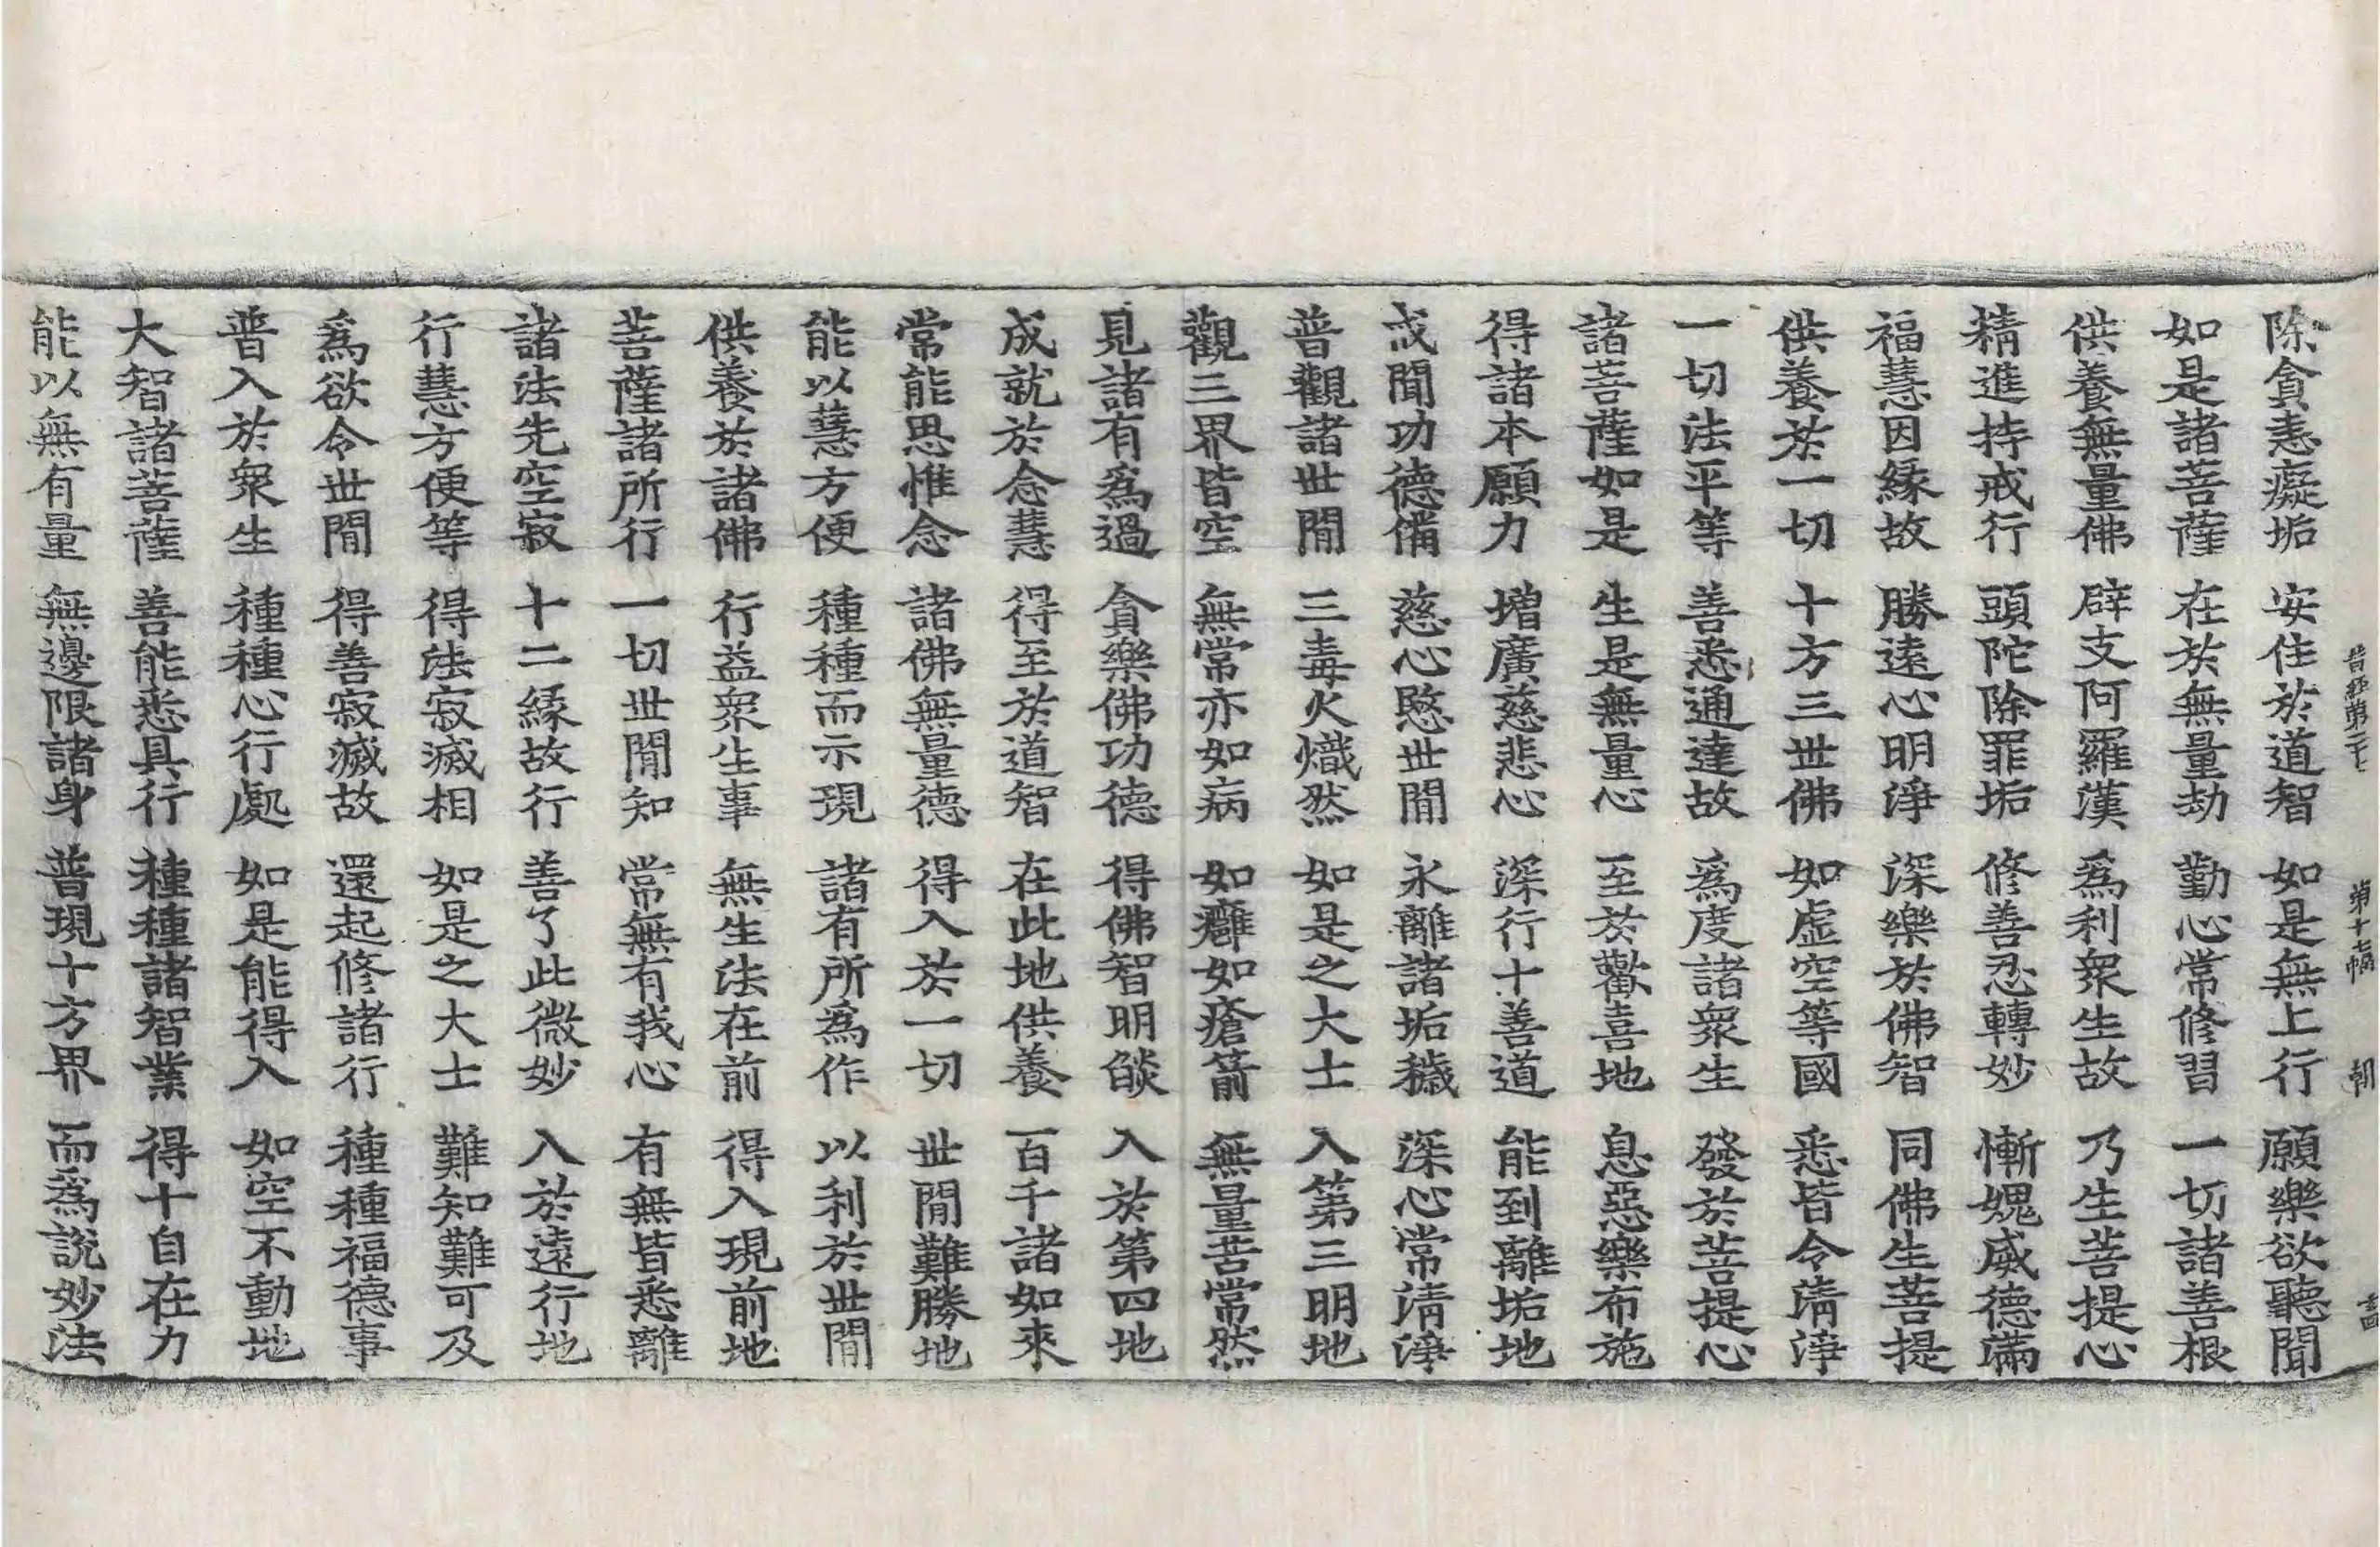 晉經第二十七 第十七幅 朝
除貪恚癡垢 安住於道智 如是無上行 願樂欲聽聞
如是諸菩薩 在於無量劫 勤心常修習 一切諸善根
供養無量佛 辟支阿羅漢 爲利衆生故 乃生菩提心
精進持戒行 頭陀除罪垢 修善忍轉妙 慚媿威德滿
福慧因縁故 勝遠心明淨 深樂於佛智 同佛生菩提
供養於一切 十方三世佛 如虛空等國 悉皆令清淨
一切法平等 善悉通達故 爲度諸衆生 發於菩提心
諸菩薩如是 生是無量心 至於歡喜地 息惡樂布施
得諸本願力 增廣慈悲心 深行十善道 能到離垢地
戒聞功德備 慈心愍世閒 永離諸垢穢 深心常清淨
普觀諸世閒 三毒火熾然 如是之大士 入第三明地
觀三界皆空 無常亦如病 如癰如瘡箭 無量苦常然
見諸有爲過 貪樂佛功德 得佛智明燄 入於第四地
成就於念慧 得至於道智 在此地供養 百千諸如來
常能思惟念 諸佛無量德 得入於一切 世閒難勝地
能以慧方便 種種而示現 諸有所爲作 以利於世閒
供養於諸佛 行益衆生事 無生法在前 得入現前地
菩薩諸所行 一切世閒知 常無有我心 有無皆悉離
諸法先空寂 十二縁故行 善了此微妙 入於遠行地
行慧方便等 得法寂滅相 如是之大士 難知難可及
爲欲令世閒 得善寂滅故 還起修諸行 種種福德事
普入於衆生 種種心行處 如是能得入 如空不動地
大智諸菩薩 善能悉具行 種種諸智業 得十自在力
能以無有量 無邊限諸身 普現十方界 而爲說妙法